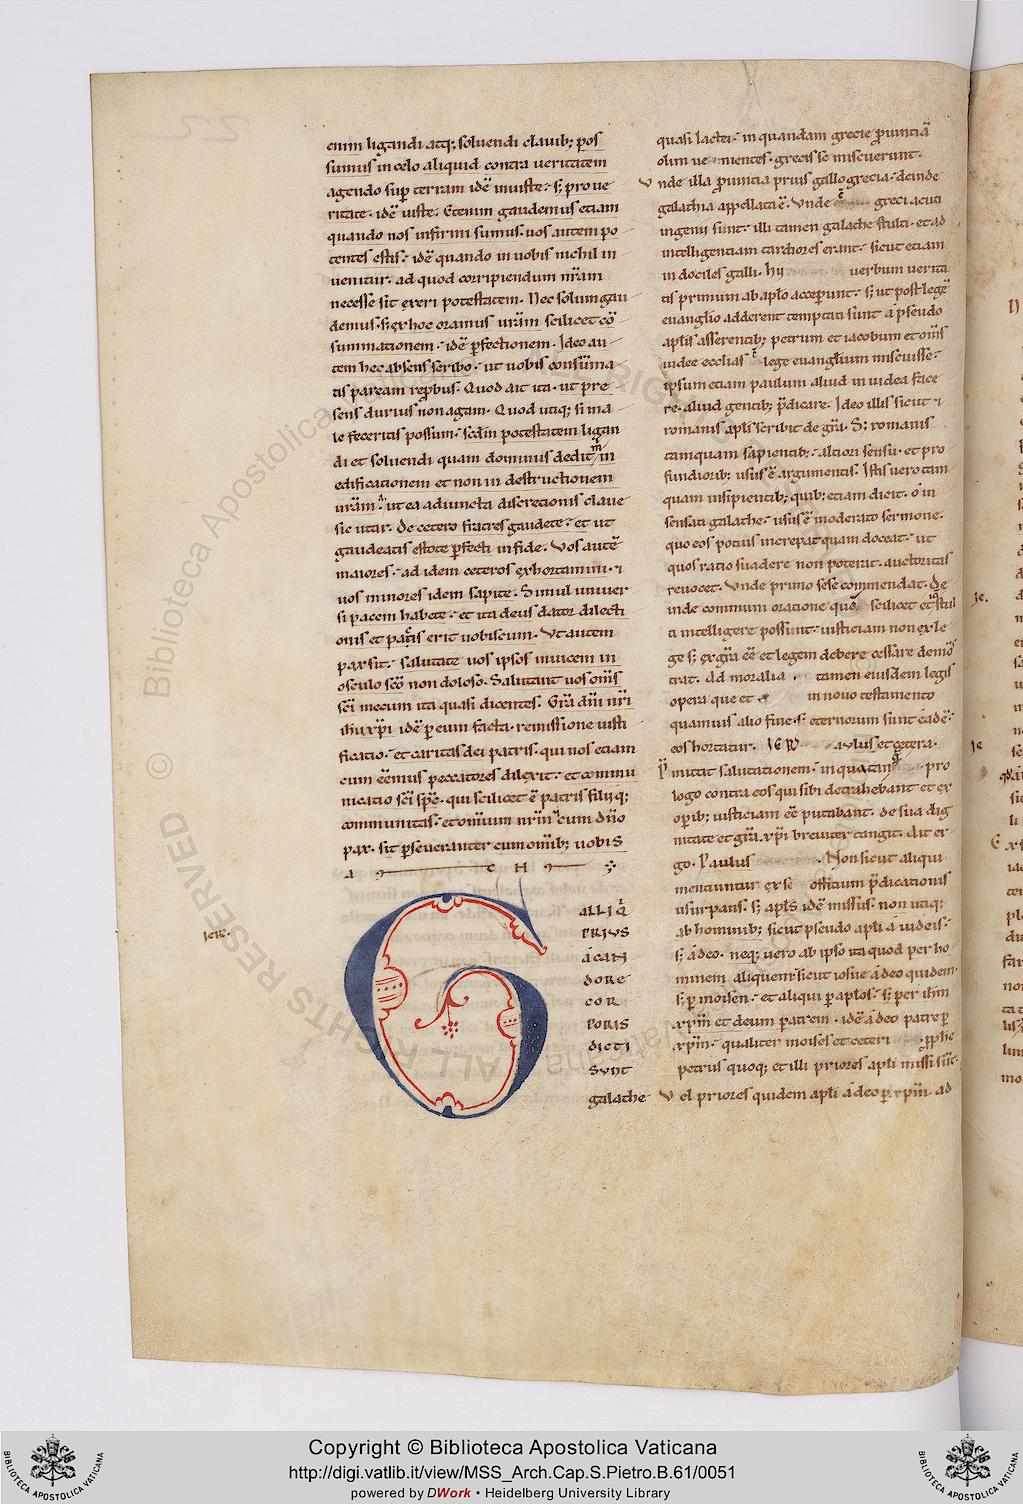 enim ligandi atq; soluendi clauib; pos
sumus in celo aliquid contra ueritatem
agendo sup̄ terram idē iniuste · s; pro ue
ritate · idē iuste. Etenim gaudemus etiam
quando nos infirmi sumus · uos autem po
tentes estis · idē quando in uobis nichil in
uenitur · ad quod corripiendum nr̄am
necesse sit exeri potestatem. Nec solum gau
demus · s; ex hoc oramus ur̄am scilicet cō
summationem · idē p̄fectionem. Ideo au
tem hec absens scribo · ut uobis consūma
tis paream rep̄bus. Quod ait ita · ut pre
sens durius non agam. Quod utiq; si ma
le feceritis possum · scdm potestatem ligan
di et soluendi quam dominus dedit m̄ in
edificationem et non in destructionem
ur̄am · ut ea adiuncta discretionis claue
sic utar. De cetero fratres gaudete · et ut
gaudeatis estote p̄fecti in fide. Vos autē
maiores · ad idem ceteros exhortamini ·
uos minores idem sapite. Simul uniuer
si pacem habete · et ita deus dator dilecti
onis et pacis erit uobiscum. Vt autem
pax sit · salutate uos ipsos inuicem in
osculo scō non doloso. Salutant uos om̄s
sc̄i mecum ita quasi dicentes. Gr̄a dn̄i nr̄i
ihu xp̄i idē p̄ eum facta · remissione iusti
ficatio · et caritas dei patris · qui nos etiam
cum eēmus peccatores dilexit · et commu
nicatio sc̄i sp̄c · qui scilicet ē patris filiiq;
communitas · et omnium nr̄m cum dn̄o
pax · sit p̄seueranter cum omīb; uobis
A C H
G ALLI Q̄
PRIVS
A CAN
DORE
COR
PORIS
DICTI
SVNT
galathe
Ier̄.
quasi lactei · in quandam grecie p̄uintiā
olim ue nientes · grecis se miscuerunt ·
Vnde illa p̄uintia prius gallogrecia · deinde
galathia appellata ē. Vnde greci acuti
ingenii sunt · illi tamen galathe stulti · et ad
intelligentiam tardiores erant · sicut etiam
indociles galli. hii uerbum uerita
tis primum ab ap̄lo acceperunt · s; ut post legē
euanglio adderent temptati sunt a pseudo
ap̄lis asserentib; petrum et iacobum et om̄s
iudee ecclias lege euanglium miscuisse ·
ipsum etiam paulum aliud in iudea face
re · aliud gentib; p̄dicare. Ideo illis sicut
romanis ap̄ls scribit de gr̄a. S; romanis
tamquam sapientib; altiori sensu · et pro
fundiorib; usus ē argumentis. Istis uero tam
quam insipientib; quib; etiam dicit · o in
sensati galathe · usus ē moderato sermone ·
quo eos potius increpat quam doceat · ut
quos ratio suadere non poterit · auctoritas
reuocet. Vnde primo sese commendat. De
inde communi oratione quo scilicet et stul
ti intelligere possunt · iusticiam non ex le
ge s; ex gr̄a eē et legem debere cessare demōs
trat. Ad moralia tamen eiusdem legis
opera que et in nouo testamento
quamuis alio fine · s; eternorum sunt eadē ·
eos hortatur. aulus et cetera ·
Premittat salutationem · in qua tan pro
logo contra eos qui sibi detrahebant et ex
opib; iusticiam eē putabant · de sua dig
nitate et gr̄a xp̄i breuiter tangit. Ait er
go. Paulus . Non sicut aliqui
mentiuntur ex se officium p̄dicationis
usurpans · s; ap̄ls idē missus · non utiq;
ab hominib; sicut pseudo ap̄li a iudeis ·
s; a deo · neq; uero ab ipso ita quod per ho
minem aliquem · sicut iosue a deo quidem ·
s; p̄ moisen · et aliqui p̄ ap̄los · s; per ihm
xp̄m et deum patrem · idē a deo patre p̄
xp̄m · qualiter moises et ceteri p̄phe
petrus quoq; et illi priores ap̄li missi sūt ·
Vel priores quidem ap̄li a deo p̄ xp̄m · ad
Ie.
Ie
Copyright © Biblioteca Apostolica Vaticana
http://digi.vatlib.it/view/MSS_Arch.Cap.S.Pietro.B.61/0051
powered by DWork • Heidelberg University Library
BIBLIOTECA APOSTOLICA VATICANA
BIBLIOTECA APOSTOLICA VATICANA
© Biblioteca Apostolica Vaticana ALL RIGHTS RESERVED